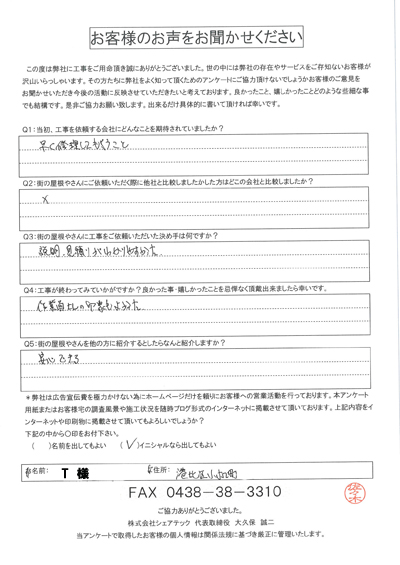 お客様のお声をお聞かせください
この度は弊社に工事をご用命頂き誠にありがとうございました。世の中には弊社の存在やサービスをご存知ないお客様が
沢山いらっしゃいます。その方たちに弊社をよく知って頂くためのアンケートにご協力頂けないでしょうかお客様のご意見を
お聞かせいただき今後の活動に反映させていただきたいと考えております。良かったこと、嬉しかったことどのような些細な事
でも結構です。是非ご協力お願い致します。出来るだけ具体的に書いて頂ければ幸いです。
Q1:当初、工事を依頼する会社にどんなことを期待されていましたか?
早く修理してもらうこと
Q2:街の屋根やさんにご依頼いただく際に他社と比較しましたかした方はどこの会社と比較しましたか?
×
Q3:街の屋根やさんに工事をご依頼いただいた決め手は何ですか?
説明、見積りがわかりやすかった
Q4:工事が終わってみていかがですか?良かった事・嬉しかったことを忌憚なく頂戴出来ましたら幸いです。
作業員さんの印象もよかった
Q5:街の屋根やさんを他の方に紹介するとしたらなんと紹介しますか?
安心できる
*弊社は広告宣伝費を極力かけない為にホームページだけを頼りにお客様への営業活動を行っております。本アンケート
用紙またはお客様宅の調査風景や施工状況を随時ブログ形式のインターネットに掲載させて頂いております。上記内容をイ
ンターネットや印刷物に掲載させて頂いてもよろしいでしょうか?
下記の中から〇印をお付下さい。
( )名前を出してもよい (✓)イニシャルなら出してもよい
お名前: T 様 ご住所: 港北区小机町
FAX 0438-38-3310
ご協力ありがとうございました。
株式会社シェアテック 代表取締役 大久保 誠二
当アンケートで取得したお客様の個人情報は関係法規に基づき厳正に管理いたします。